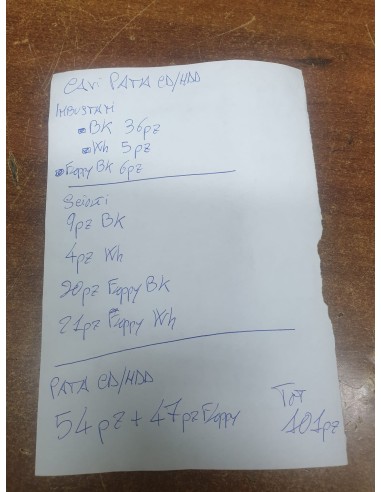 Cavi PATA CD/HDD
IMBUSTATI
BK 36pz
Wh 5pz
Floppy BK 6pz
Sciolti
9pz BK
4pz Wh
20pz Floppy BK
21pz Floppy Wh
PATA CD/HDD
54pz + 47pz Floppy
Tot
101pz